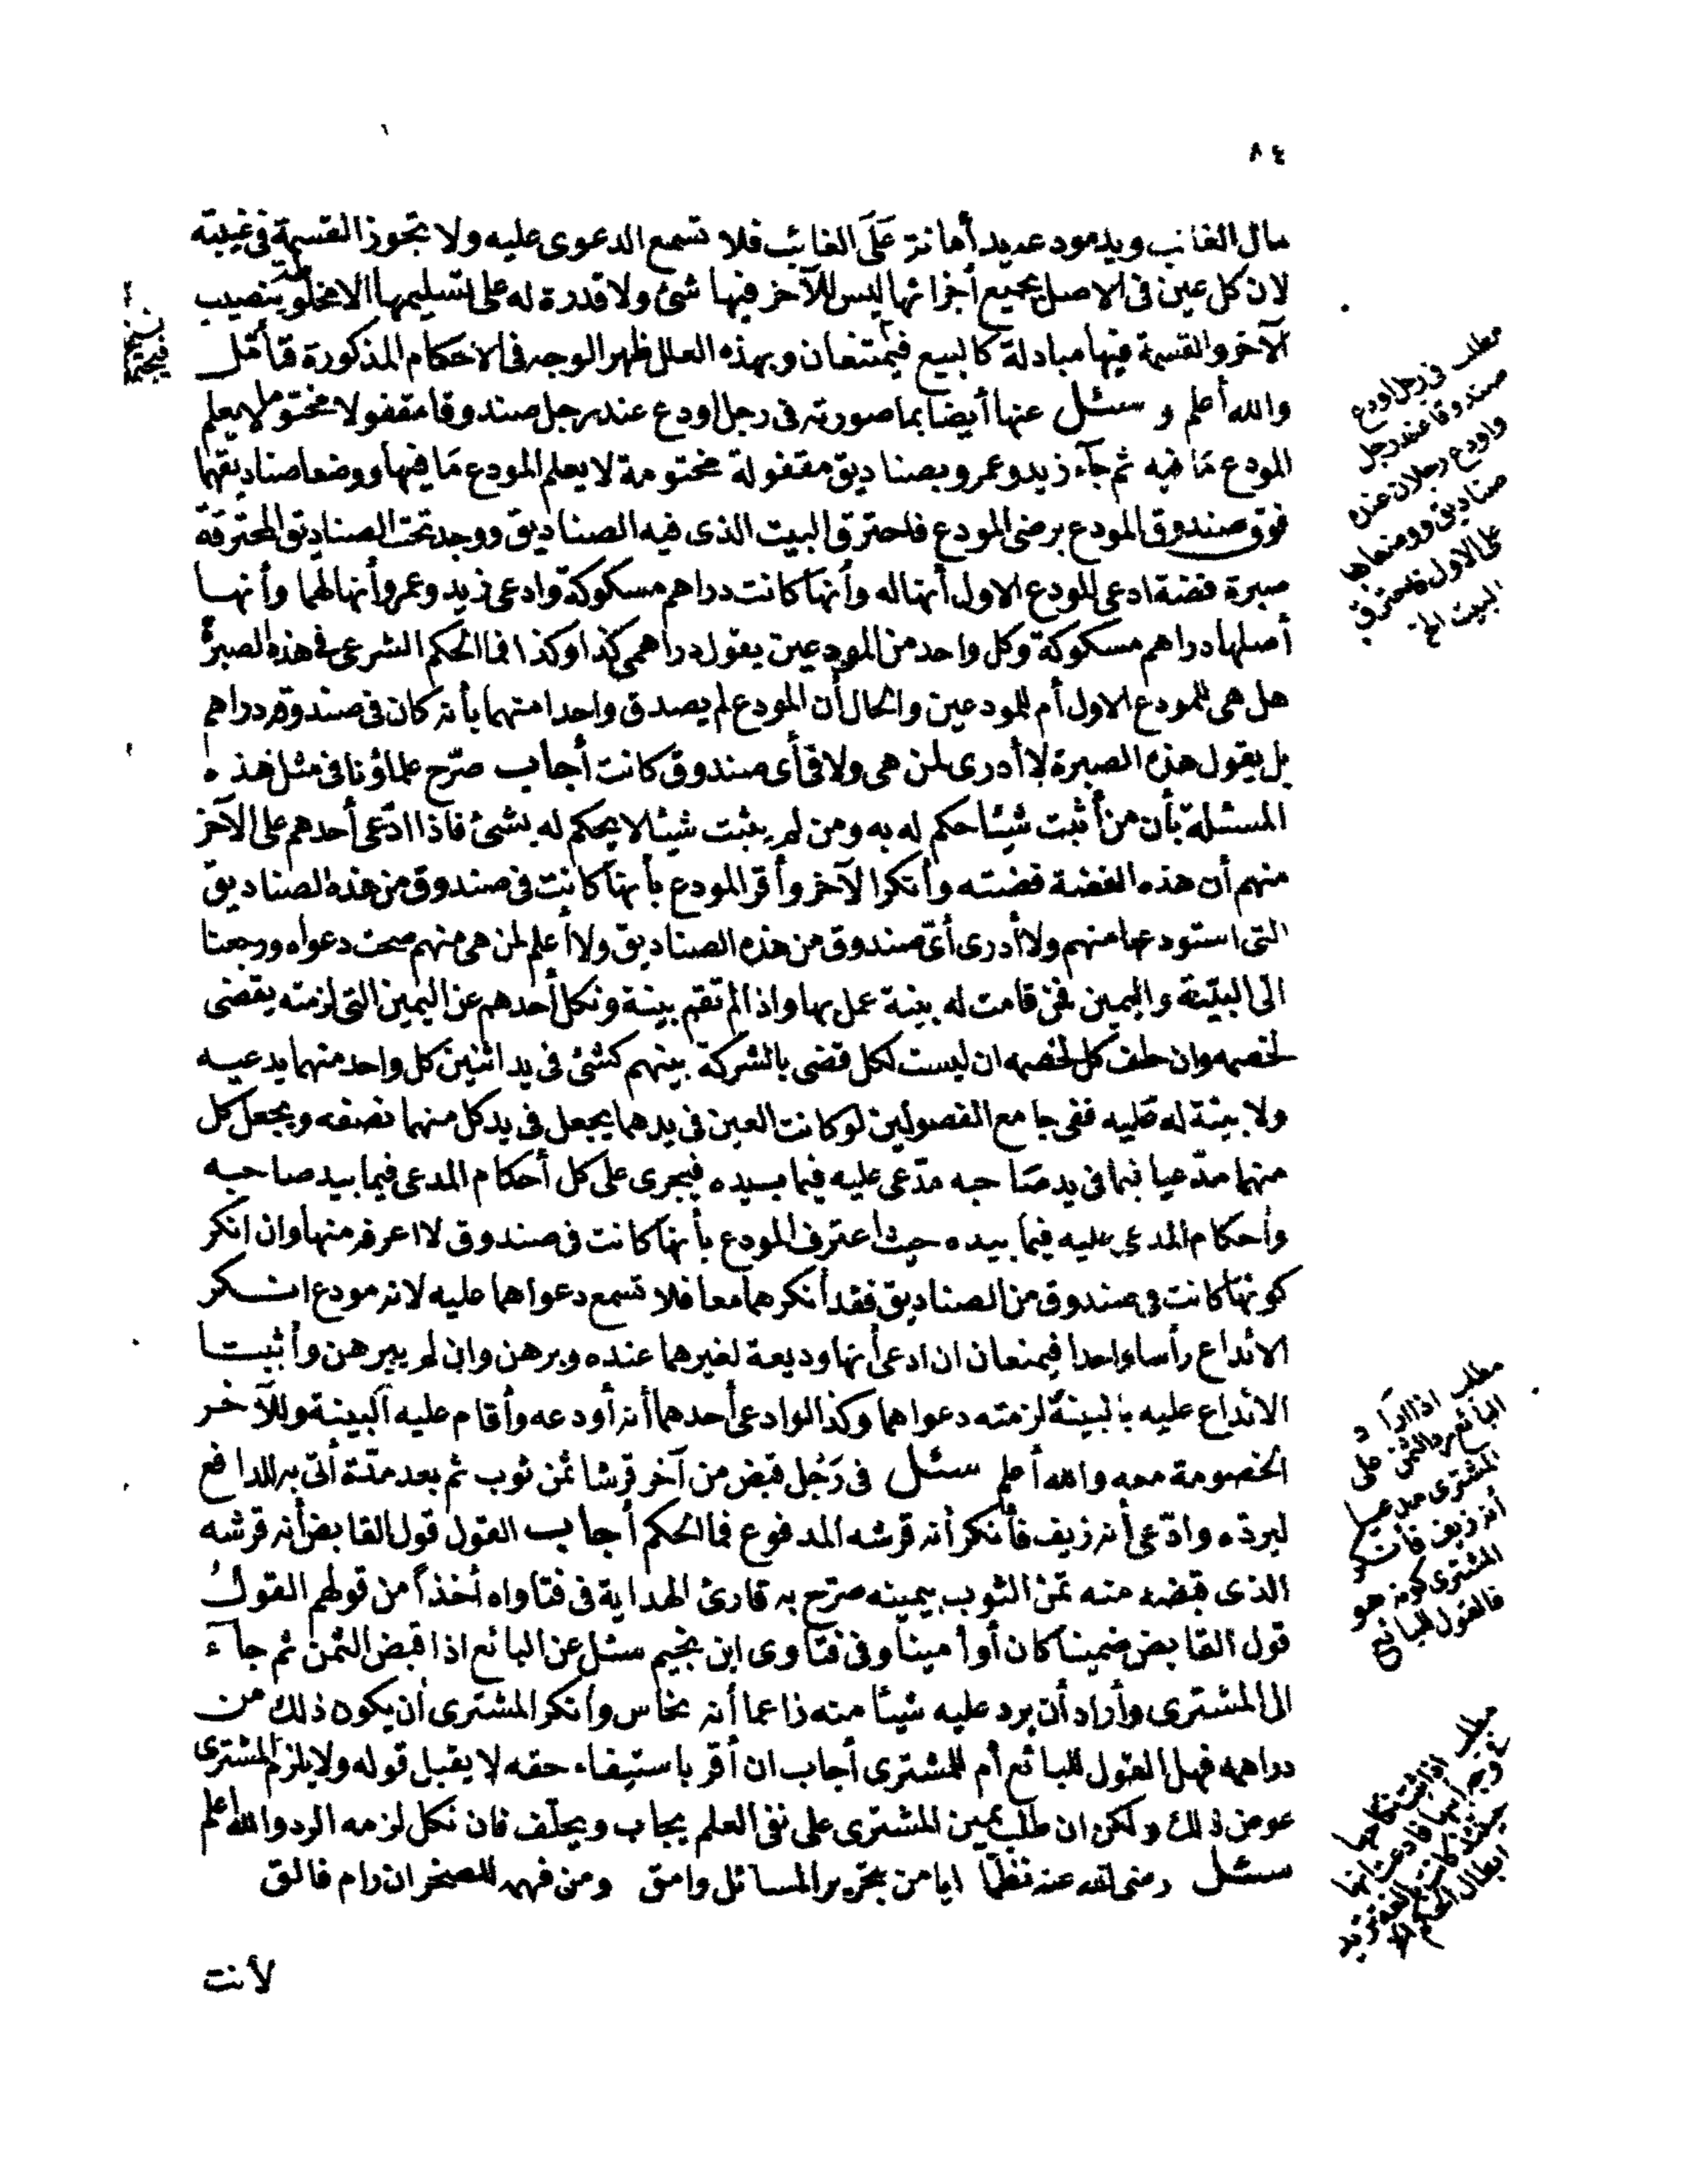 ٨٤
مال الغائب ويد مودعه يد أمانة عَلَى الغائب فلا تسمع الدعوى عليه ولا تجوز القسمة فى غيبته
لان كل عين فى الاصل بجميع أجزائها ليس للآخر فيها شئ ولا قدرة له على تسليمها الا مخلوطة بنصيب
الآخر والقسمة فيها مبادلة كالبيع فيمتنعان وبهذه العلل ظهر الوجه فى الاحكام المذكورة فتأمل
والله أعلم و سئل عنها أيضا بما صورته فى رجل اودع عند رجل صندوقا مقفولا مختوما لا يعلم
المودع مَا فيه ثم جآء زيد وعمرو بصناديق مقفولة مختومة لا يعلم المودع مَا فيها ووضعا صناديقهما
فوق صندوق المودع برضى المودع فاحترق البيت الذى فيه الصناديق ووجد تحت الصناديق المحترقة
صبرة فضة ادعى المودع الاول أنها له وأنها كانت دراهم مسكوكة وادعى زيد وعمرو أنها لهما وأنها
أصلها دراهم مسكوكة وكل واحد من المودعين يقول دراهمى كذا وكذا فما الحكم الشرعى فى هذه الصبرة
هل هى للمودع الاول أم للمودعين والحال أن المودع لم يصدق واحدا منهما بأنه كان فى صندوقه دراهم
بل يقول هذه الصبرة لا أدرى لمن هى ولا فى أى صندوق كانت أجاب صرّح علماؤنا فى مثل هذه
المسئلة بأن من أثبت شيئا حكم له به ومن لم يثبت شيئا لا يحكم له بشئ فاذا ادّعى أحدهم على الآخر
منهم أن هذه الفضة فضته وأنكر الآخر وأقر المودع بأنها كانت فى صندوق من هذه الصناديق
التى استودعها منهم ولا أدرى أىّ صندوق من هذه الصناديق ولا أعلم لمن هى منهم صحت دعواه ورجعنا
الى البيّنة واليمين فمن قامت له بينة عمل بها واذا لم تقم بينة ونكل أحدهم عن اليمين التى لزمته يقضى
لخصمه وان حلف كل لخصمه ان ليست لكل قضى بالشركة بينهم كشئ فى يد اثنين كل واحد منهما يدعيه
ولا بينة له عليه ففى جامع الفصولين لو كانت العين فى يدهما يجعل فى يد كل منهما نصفه ويجعل كل
منهما مدّعيا بما فى يد صَاحبه مدّعى عليه فيما بيده فيجرى على كل أحكام المدعى فيما بيد صاحبه
وأحكام المدعى عليه فيما بيده حيث اعترف المودع بأنها كانت فى صندوق لا اعرفه منها وان انكر
كونها كانت فى صندوق من الصناديق فقد أنكرهما معا فلا تسمع دعواهما عليه لانه مودع انكر
الايداع رأسا واحدا فيمنعان ان ادعى أنها وديعة لغيرهما عنده وبرهن وان لم يبرهن وأثبتا
الايداع عليه بالبينة لزمته دعواهما وكذا لو ادعى أحدهما أنه أودعه وأقام عليه البينة وللآخر
الخصومة معه والله أعلم سئل فى رَجُل قبض من آخر قرشا ثمن ثوب ثم بعد مدّة أتى به للدافع
ليردّه وادّعى أنه زيف فأنكر أنه قرشه المدفوع فما الحكم أجاب القول قول القابض أنه قرشه
الذى قبضه منه ثمن الثوب بيمينه صرّح به قارئ الهداية فى فتاواه أخذاً من قولهم القول
قول القابض ضمينا كان أو أمينا وفى فتاوى ابن نجيم سئل عن البائع اذا قبض الثمن ثم جآء
الى المشترى وأراد أن يرد عليه شيئا منه زاعما أنه نحاس وأنكر المشترى أن يكون ذلك من
دراهمه فهل القول للبائع أم للمشترى أجاب ان أقر باستيفاء حقه لا يقبل قوله ولا يلزم المشترى
عوض ذلك ولكن ان طلب يمين المشترى على نفى العلم يجاب ويحلّف فان نكل لزمه الرد والله اعلم
سئل رضى الله عنه نظما ايا من بتحرير المسائل وامق ومن فهمه للصخر ان رام فالق
لأنت
مطلب فى رجل اودع
صندوقا عند رجل
واودع رجلان عنده
صناديق ووضعاها
على الاول فاحترق
البيت الخ
مطلب اذا اراد
البائع رد الثمن على
المشترى مدعيا
أنه زيف فأنكر
المشترى كونه هو
فالقول للبائع
مطلب